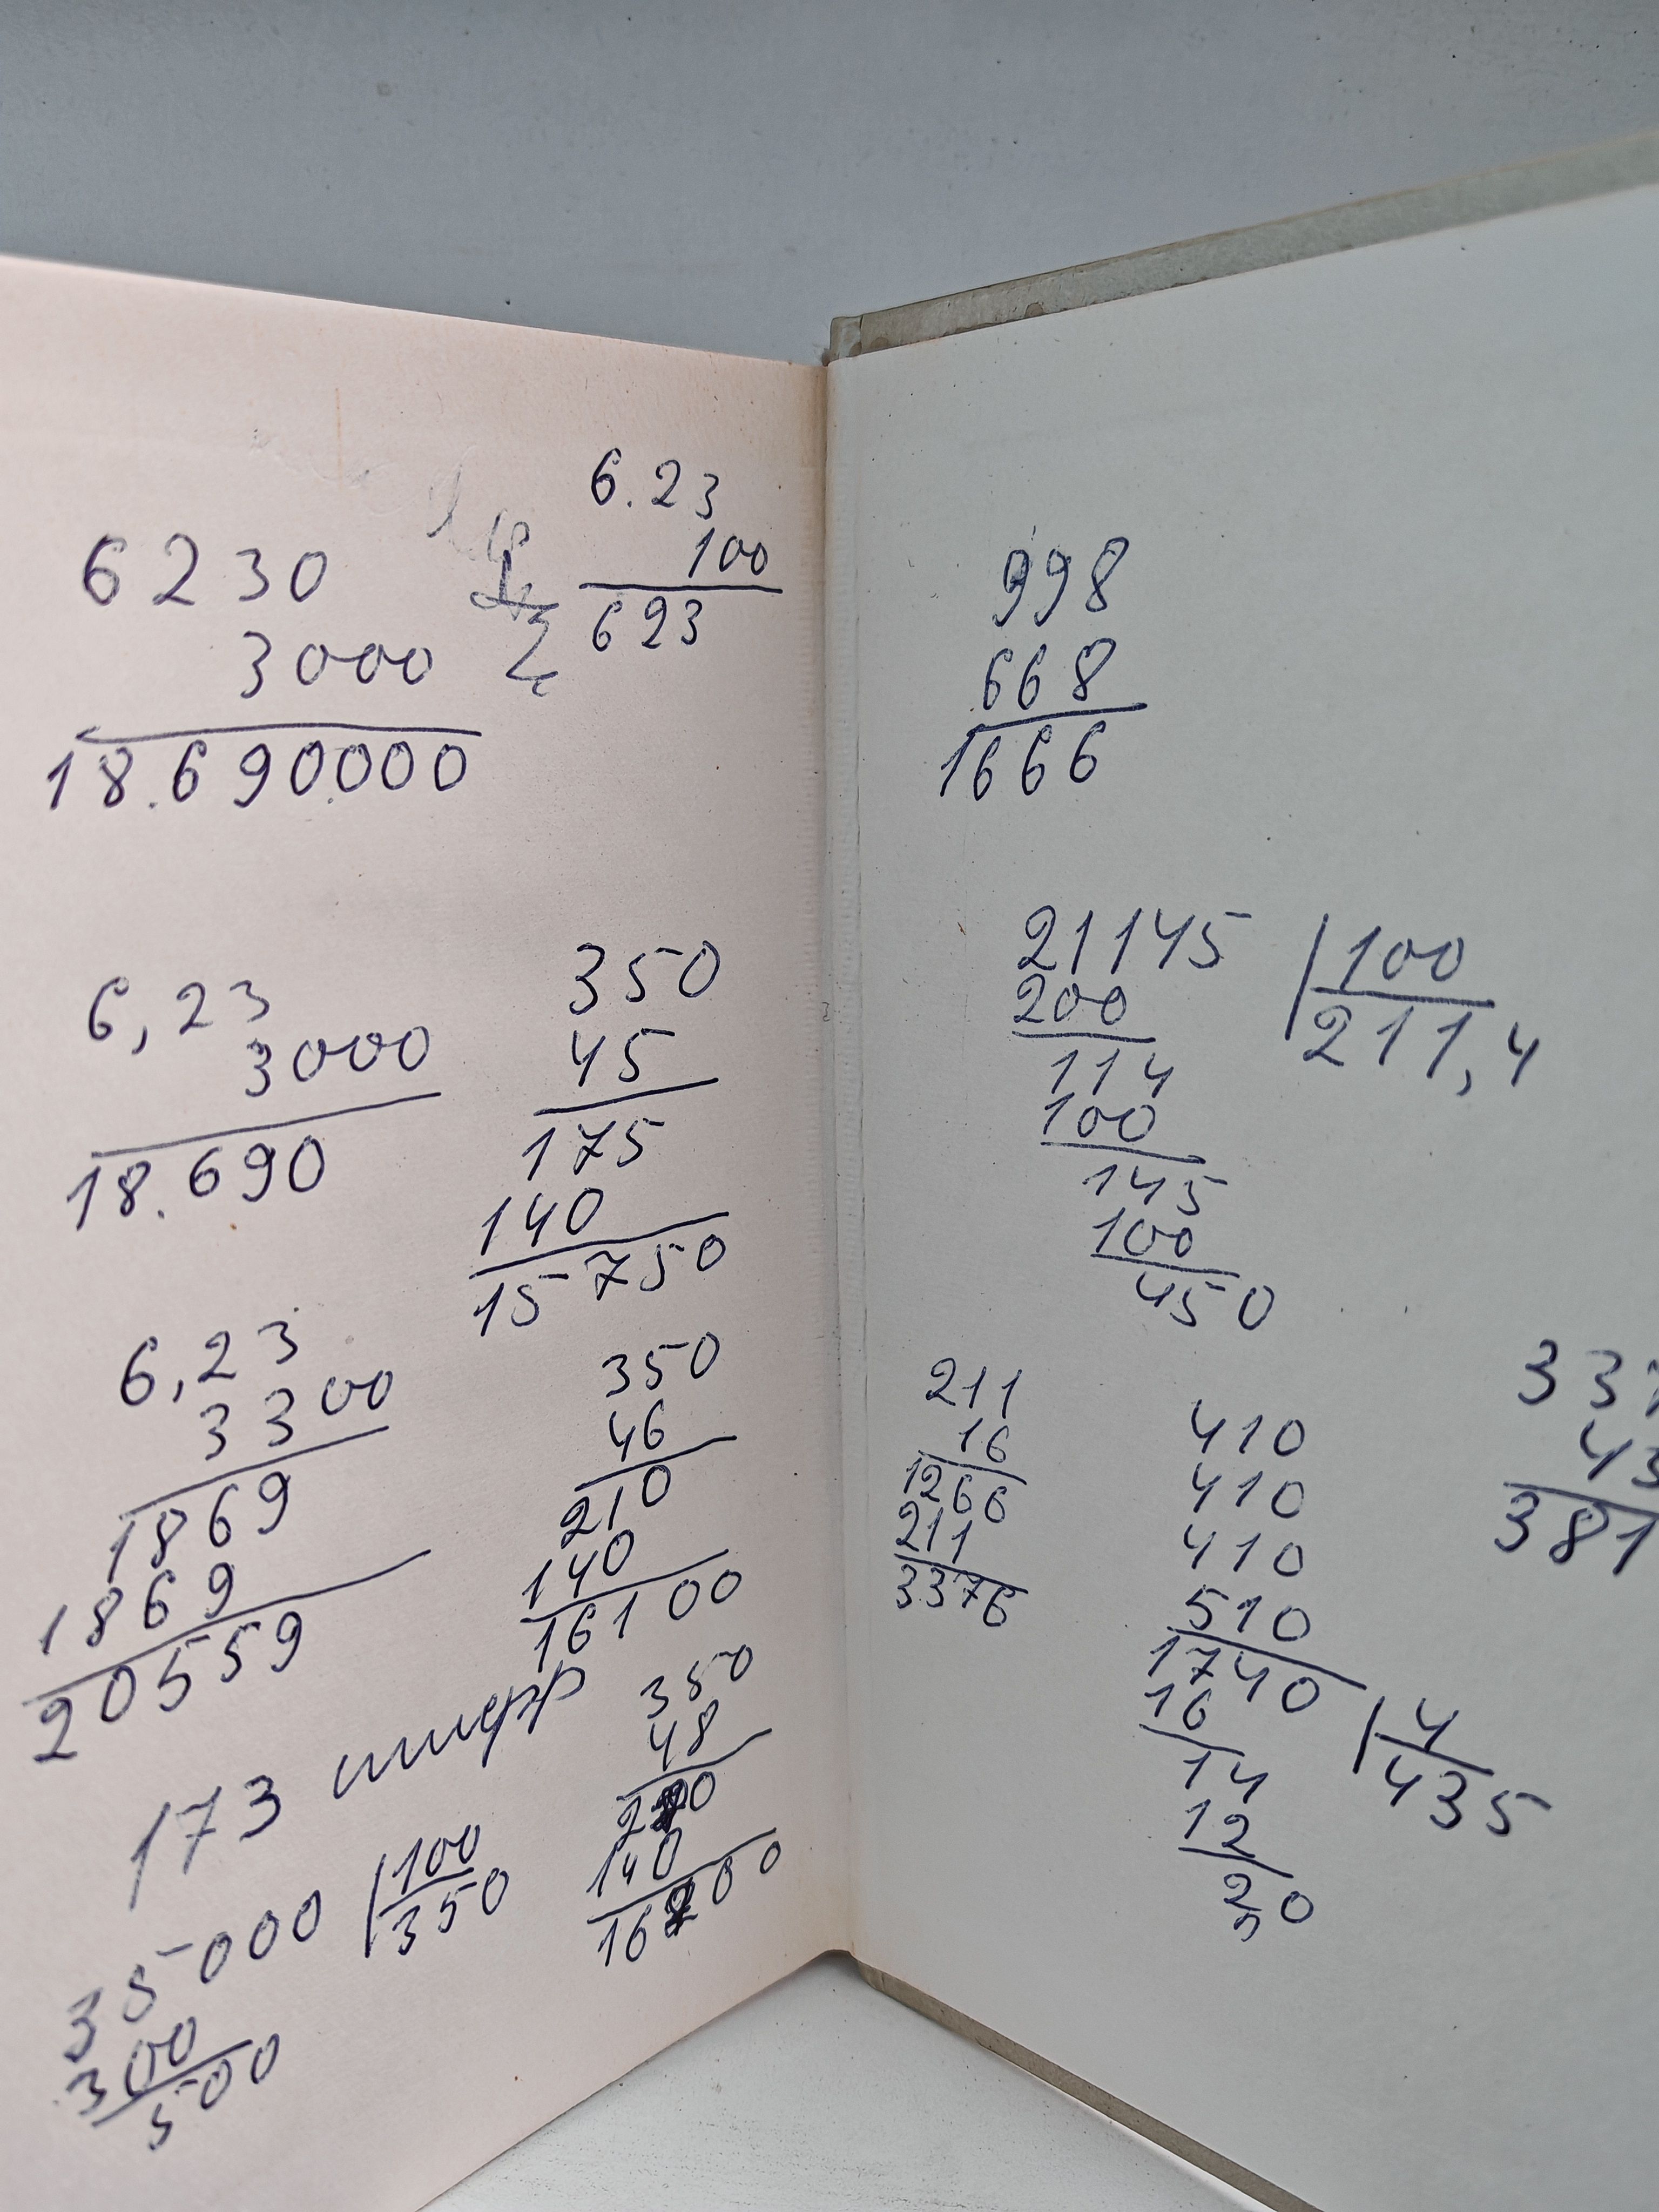 6230
3000
18.690.000
6.23
100
623
6,23
3000
18.690
350
45
175
140
15750
6,23
3300
1869
1869
20559
350
46
210
140
16100
173 шифр
350
48
140
35000 100
350
300
500
998
668
1666
21145 100
211,4
200
114
100
145
100
450
211
16
1266
211
3376
410
410
410
510
1740 4
435
16
14
12
20
337
43
381